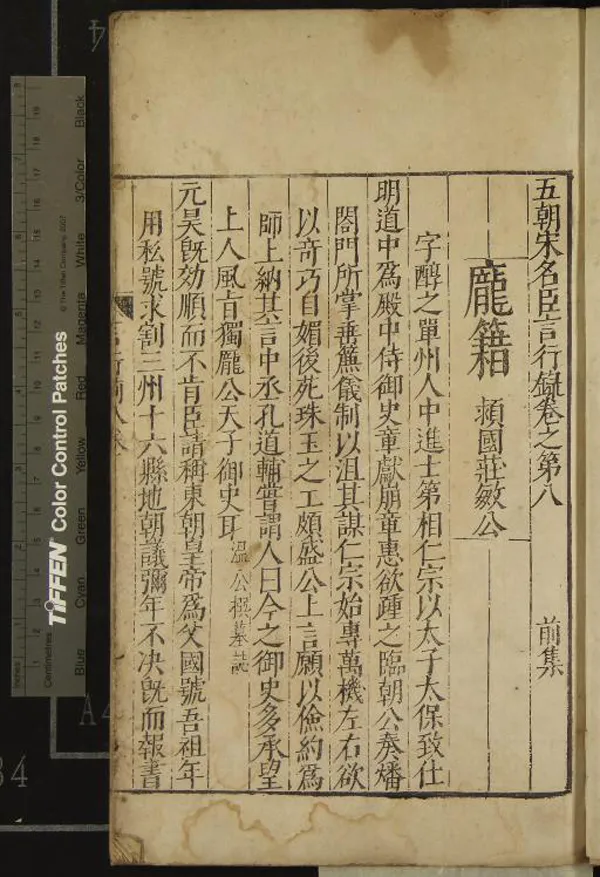 五朝宋名臣言行錄卷之第八
前集
龐籍 頴國莊敏公
字醇之單州人中進士第相仁宗以太子太保致仕
明道中爲殿中侍御史章獻崩章惠欲踵之臨朝公奏燔
閤門所掌垂簾儀制以沮其謀仁宗始專萬機左右欲
以奇巧自媚後苑珠玉之工頗盛公上言願以儉約爲
師上納其言中丞孔道輔嘗謂人曰今之御史多承望
上人風旨獨龐公天子御史耳 溫公撰墓誌
元昊旣効順而不肯臣請稱東朝皇帝爲父國號吾祖年
用私號求割三州十六縣地朝議彌年不决旣而報書
TIFFEN Color Control Patches
© The Tiffen Company, 2007
Centimetres
Inches
Blue
Cyan
Green
Yellow
Red
Magenta
White
3/Color
Black